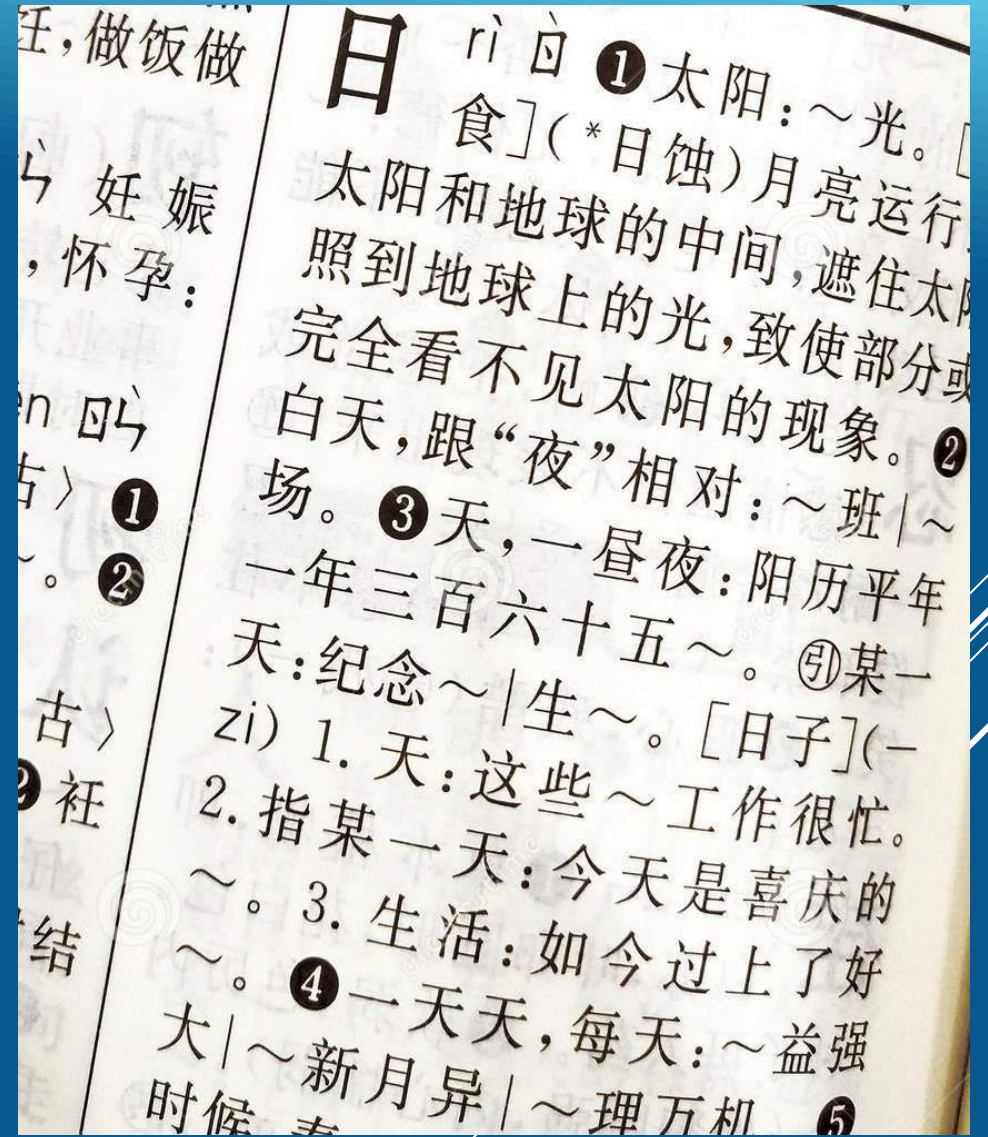 饪,做饭做
ㄣˋ 妊娠
,怀孕:
en ㄖㄣˋ
古〉❶
~。❷
古〉
❷衽
结
日 rì ㄖˋ ❶太阳:~光。[
食](*日蚀)月亮运行
太阳和地球的中间,遮住太阳
照到地球上的光,致使部分或
完全看不见太阳的现象。❷
白天,跟“夜”相对:~班|~
场。❸天,一昼夜:阳历平年
一年三百六十五~。㊁某一
天:纪念~|生~。[日子](—
zi) 1. 天:这些~工作很忙。
2. 指某一天:今天是喜庆的
~。3. 生活:如今过上了好
~。❹一天天,每天:~益强
大|~新月异|~理万机 ❺
时候 春